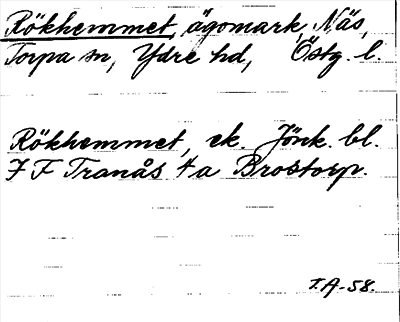 Rökhemmet, ägomark, Näs,
Torpa sn, Ydre hd, Östg. l.
Rökhemmet, ek. Jönk. bl.
7 F Tranås 4 a Brostorp.
I.A-58.